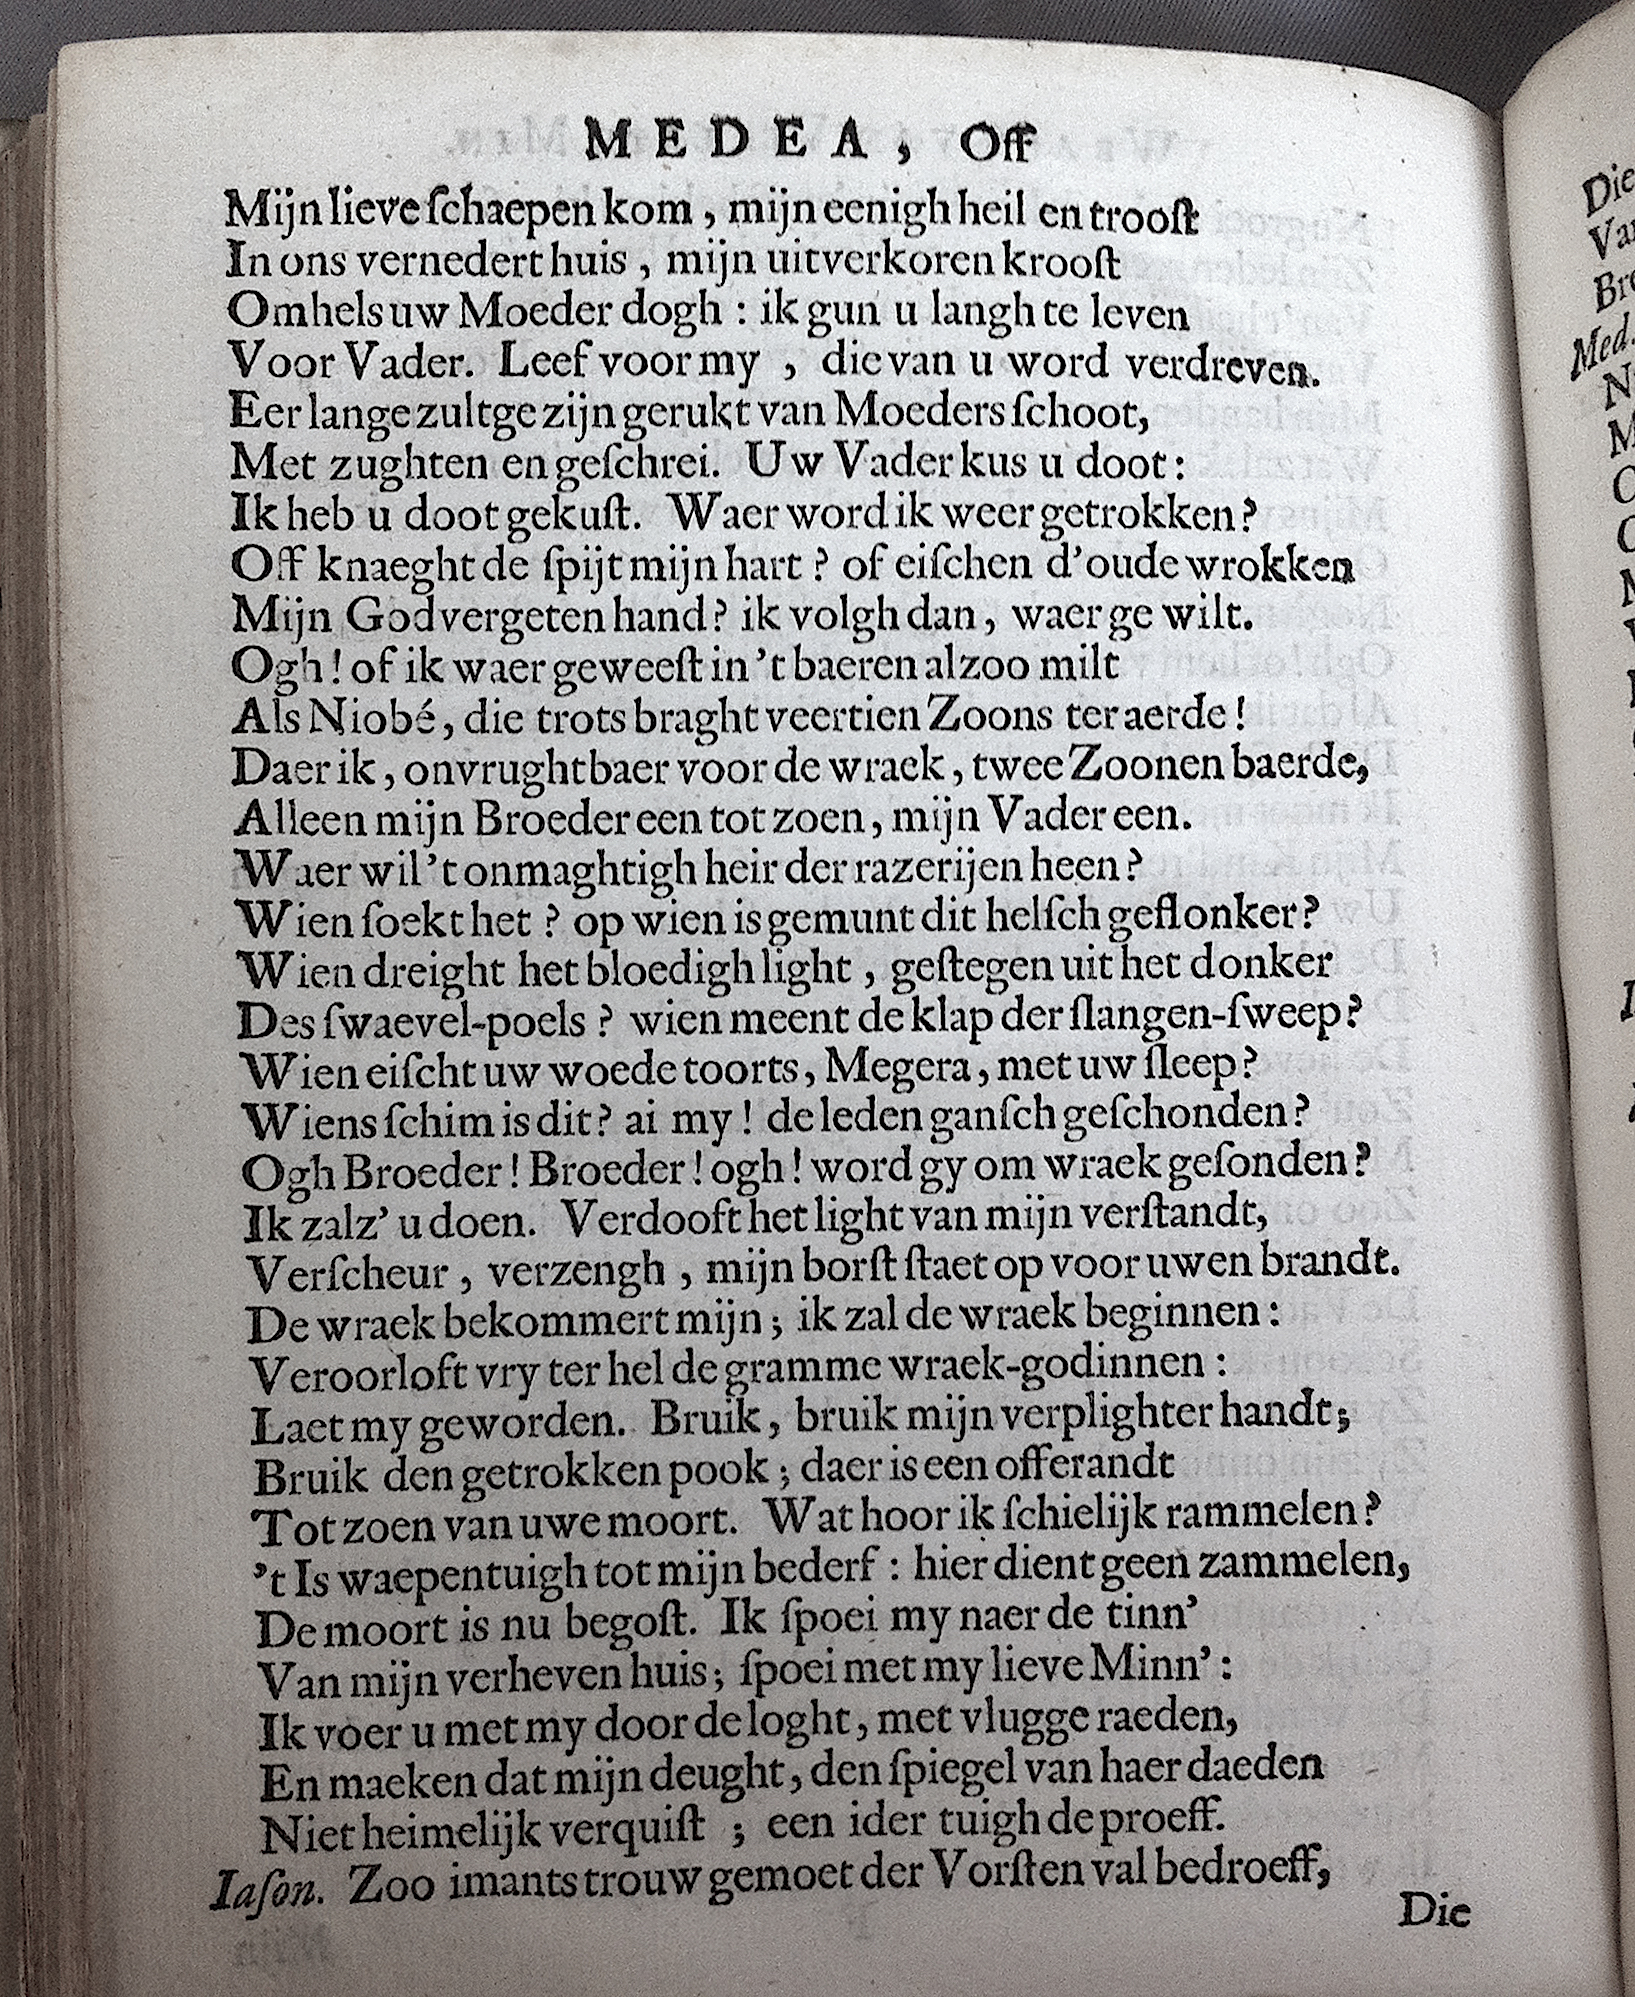 MEDEA, Off
Mijn lieve ſchaepen kom, mijn eenigh heil en trooſt
In ons vernedert huis, mijn uitverkoren krooſt
Omhels uw Moeder dogh: ik gun u langh te leven
Voor Vader. Leef voor my, die van u word verdreven.
Eer lange zult ge zijn gerukt van Moeders ſchoot,
Met zughten en geſchrei. Uw Vader kus u doot:
Ik heb u doot gekuſt. Waer word ik weer getrokken?
Off knaeght de ſpijt mijn hart? of eiſchen d'oude wrokken
Mijn Godvergeten hand? ik volgh dan, waer ge wilt.
Ogh! of ik waer geweeſt in 't baeren alzoo milt
Als Niobé, die trots braght veertien Zoons ter aerde!
Daer ik, onvrughtbaer voor de wraek, twee Zoonen baerde,
Alleen mijn Broeder een tot zoen, mijn Vader een.
Waer wil 't onmaghtigh heir der razerijen heen?
Wien ſoekt het? op wien is gemunt dit helſch geflonker?
Wien dreight het bloedigh light, geſtegen uit het donker
Des ſwaevel-poels? wien meent de klap der ſlangen-ſweep?
Wien eiſcht uw woede toorts, Megera, met uw ſleep?
Wiens ſchim is dit? ai my! de leden ganſch geſchonden?
Ogh Broeder! Broeder! ogh! word gy om wraek geſonden?
Ik zalz' u doen. Verdooft het light van mijn verſtandt,
Verſcheur, verzengh, mijn borſt ſtaet op voor uwen brandt.
De wraek bekommert mijn; ik zal de wraek beginnen:
Veroorloft vry ter hel de gramme wraek-godinnen:
Laet my geworden. Bruik, bruik mijn verplighter handt;
Bruik den getrokken pook; daer is een offerandt
Tot zoen van uwe moort. Wat hoor ik ſchielijk rammelen?
't Is waepentuigh tot mijn bederf: hier dient geen zammelen,
De moort is nu begoſt. Ik ſpoei my naer de tinn'
Van mijn verheven huis; ſpoei met my lieve Minn':
Ik voer u met my door de loght, met vlugge raeden,
En maeken dat mijn deught, den ſpiegel van haer daeden
Niet heimelijk verquiſt; een ider tuigh de proeff.
Iaſon. Zoo imants trouw gemoet der Vorſten val bedroeff,
Die
Die
Med.